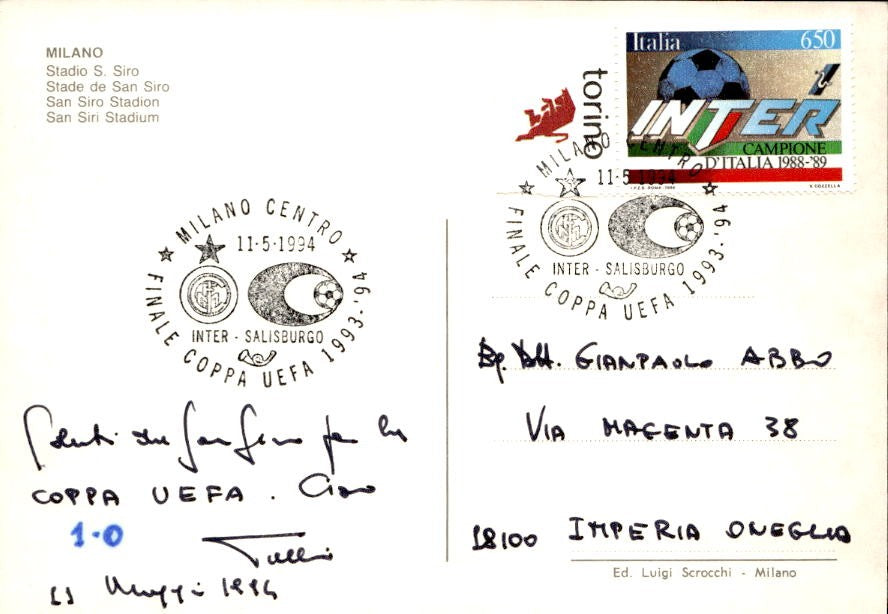 MILANO
Stadio S. Siro
Stade de San Siro
San Siro Stadion
San Siri Stadium
torino
Italia 650
INTER
CAMPIONE
D'ITALIA 1988-'89
I.P.Z.S. ROMA - 1989
V. COZZELLA
MILANO CENTRO
11-5-1994
INTER - SALISBURGO
FINALE COPPA UEFA 1993-'94
MILANO CENTRO
11-5-1994
INTER - SALISBURGO
FINALE COPPA UEFA 1993-'94
Saluti da San Siro per la
COPPA UEFA. Ciao
1-0
Tullio
11 Maggio 1994
Eg. Dott. GIANPAOLO ABBO
VIA MAGENTA 38
18100 IMPERIA ONEGLIA
Ed. Luigi Scrocchi - Milano